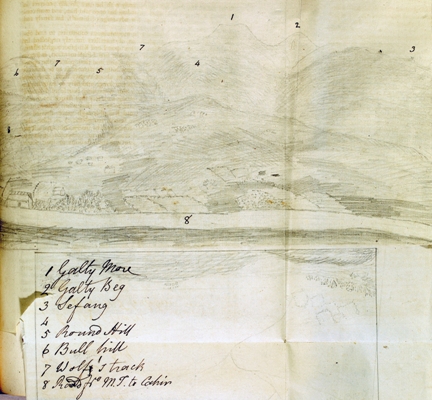 1
2
7
3
4
7
6
5
8
1 Galty More
2 Galty Beg
3 Lefang
4
5 Round Hill
6 Bull hill
7 Wolfe's track
8 Road fro M.T. to Cahir